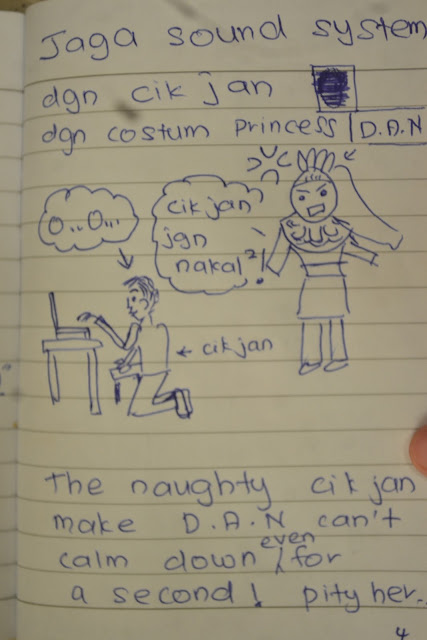 Jaga sound system
dgn cik jan
dgn costum princess D.A.N
O..O...
cik jan
jgn
nakal²!
← cik jan
The naughty cik jan
make D.A.N can't
calm down even for
a second! pity her..
4